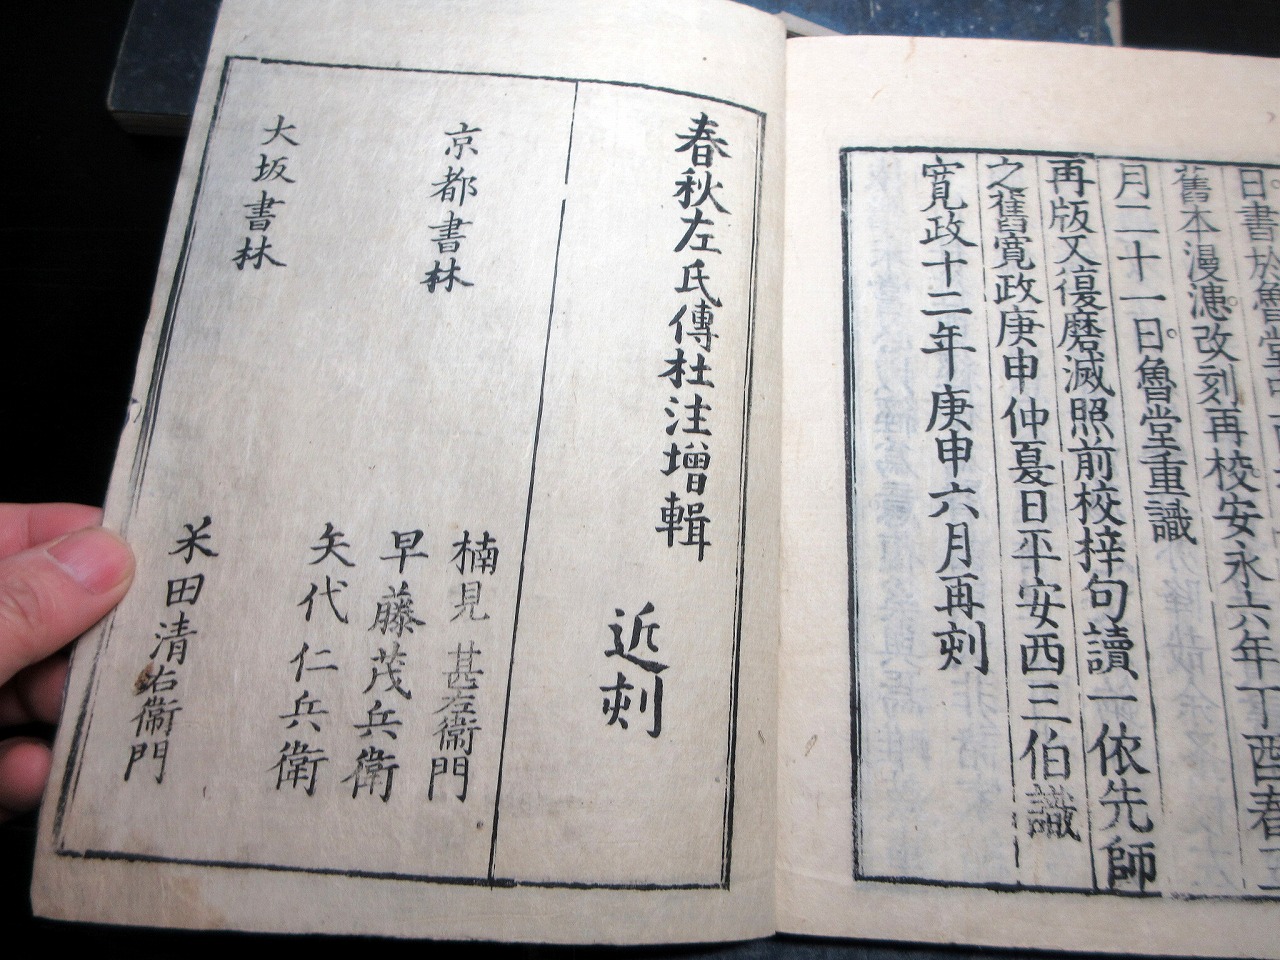 日書於魯堂
舊本漫漶改刻再校安永六年丁酉春三
月二十一日魯堂重識
再版又復磨滅照前校梓句讀一依先師
之舊寬政庚申仲夏日平安西三伯識
寬政十二年庚申六月再刻
春秋左氏傳杜注增輯 近刻
京都書林
楠見甚左衛門
早藤茂兵衛
矢代仁兵衛
大坂書林
米田清右衛門